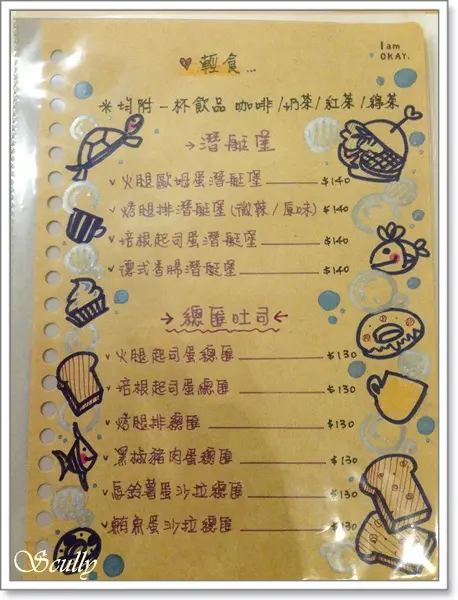 I am
OKAY.
♥ 輕食...
※均附一杯飲品 咖啡/奶茶/紅茶/綠茶
→潛艇堡
✓火腿歐姆蛋潛艇堡 $140
✓烤腿排潛艇堡(微辣/原味) $140
✓培根起司蛋潛艇堡 $140
✓德式香腸潛艇堡 $140
→總匯吐司←
✓火腿起司蛋總匯 $130
✓培根起司蛋總匯 $130
✓烤腿排總匯 $130
✓黑椒豬肉蛋總匯 $130
✓馬鈴薯蛋沙拉總匯 $130
✓鮪魚蛋沙拉總匯 $130
Scully